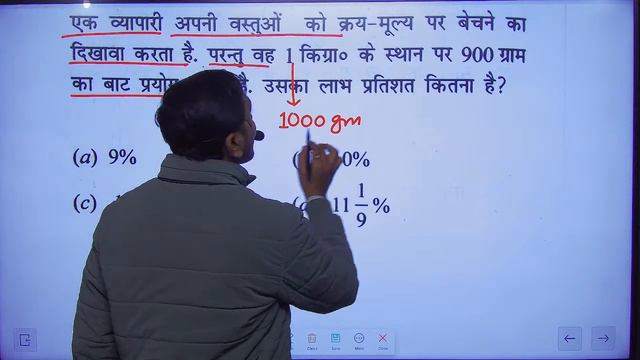 एक व्यापारी अपनी वस्तुओं को क्रय-मूल्य पर बेचने का
दिखावा करता है. परन्तु वह 1 किग्रा० के स्थान पर 900 ग्राम
का बाट प्रयोग है. उसका लाभ प्रतिशत कितना है?
1000 gm
(a) 9%
0%
(c)
11 1/9 %